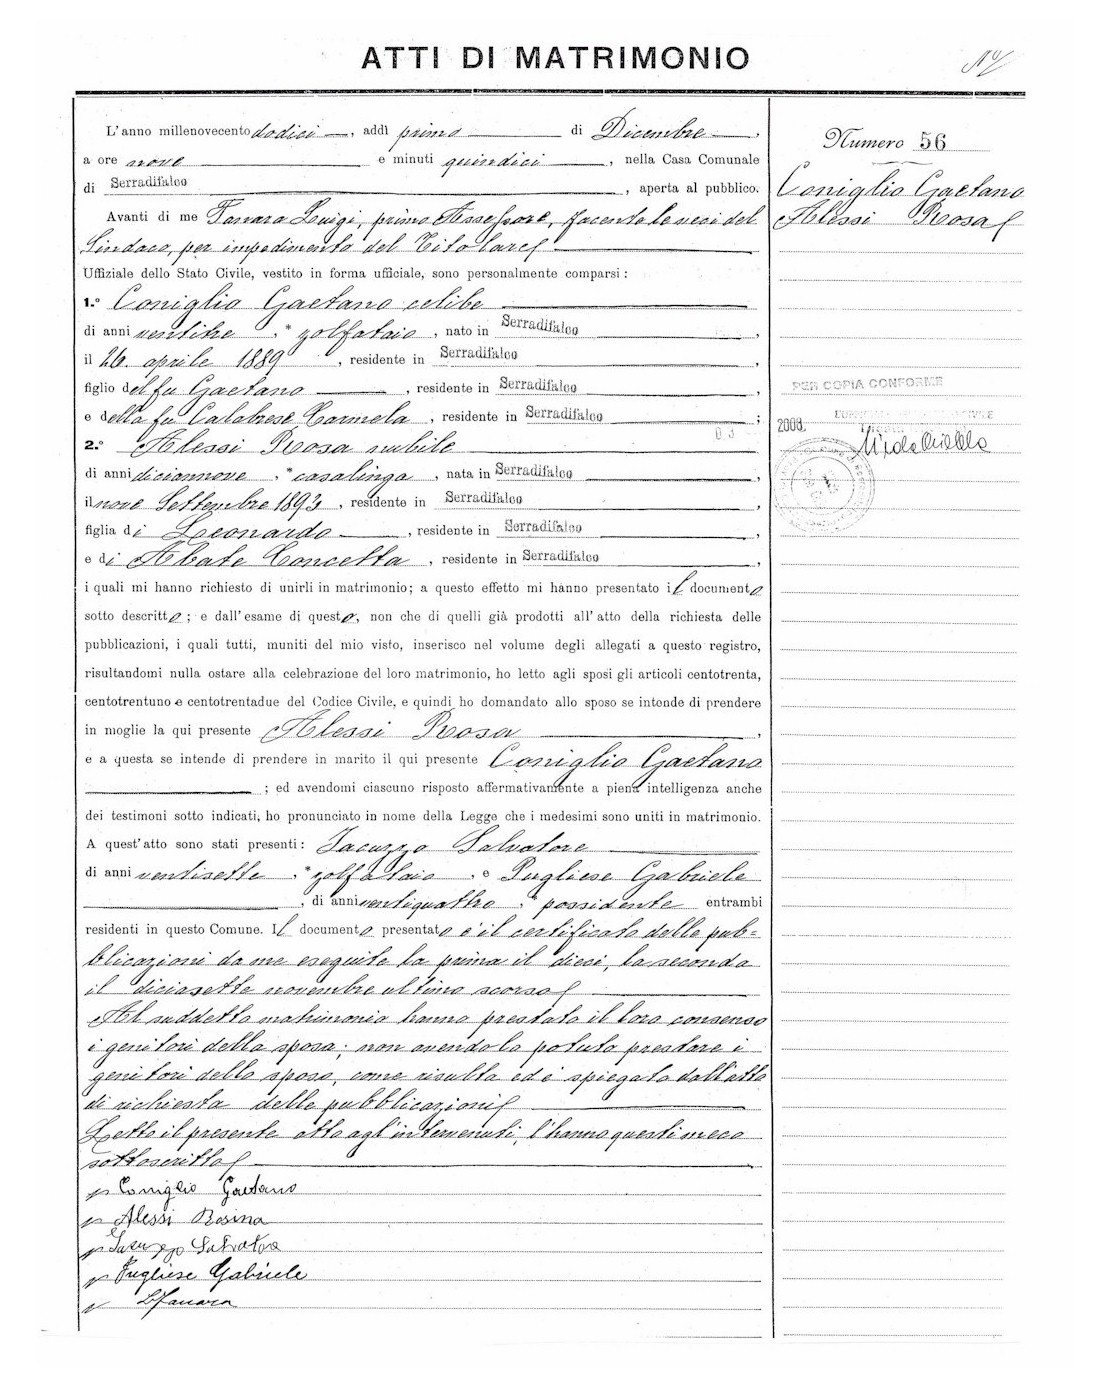 ATTI DI MATRIMONIO
L'anno millenovecento dodici, addì primo di Dicembre,
a ore nove e minuti quindici, nella Casa Comunale
di Serradifalco, aperta al pubblico.
Avanti di me Fanara Luigi, primo Assessore, facente le veci del
Sindaco, per impedimento del Titolare
Uffiziale dello Stato Civile, vestito in forma ufficiale, sono personalmente comparsi:
1.° Coniglio Gaetano celibe
di anni ventitre, * zolfataio, nato in Serradifalco,
il 26 aprile 1889, residente in Serradifalco,
figlio del fu Gaetano, residente in Serradifalco,
e della fu Calabrese Carmela, residente in Serradifalco;
2.° Alessi Rosa nubile
di anni diciannove, * casalinga, nata in Serradifalco,
il nove Settembre 1893, residente in Serradifalco,
figlia di Leonardo, residente in Serradifalco
e di Abate Concetta, residente in Serradifalco,
i quali mi hanno richiesto di unirli in matrimonio; a questo effetto mi hanno presentato il documento
sotto descritto; e dall'esame di questo, non che di quelli già prodotti all'atto della richiesta delle
pubblicazioni, i quali tutti, muniti del mio visto, inserisco nel volume degli allegati a questo registro,
risultandomi nulla ostare alla celebrazione del loro matrimonio, ho letto agli sposi gli articoli centotrenta,
centotrentuno e centotrentadue del Codice Civile, e quindi ho domandato allo sposo se intende di prendere
in moglie la qui presente Alessi Rosa,
e a questa se intende di prendere in marito il qui presente Coniglio Gaetano
; ed avendomi ciascuno risposto affermativamente a piena intelligenza anche
dei testimoni sotto indicati, ho pronunciato in nome della Legge che i medesimi sono uniti in matrimonio.
A quest'atto sono stati presenti: Iacuzzo Salvatore
di anni ventisette, * zolfataio, e Pugliese Gabriele
, di anni ventiquattro, * possidente entrambi
residenti in questo Comune. Il documento presentato è il certificato delle pub=
blicazioni da me eseguite la prima il dieci, la seconda
il diciasette novembre ultimo scorso
Al suddetto matrimonio hanno prestato il loro consenso
i genitori della sposa; non avendolo potuto prestare i
genitori dello sposo, come risulta ed è spiegato dall'atto
di richiesta delle pubblicazioni
Letto il presente atto agl'intervenuti, l'hanno questi meco
sottoscritto
Coniglio Gaetano
Alessi Rosina
Iacuzzo Salvatore
Pugliese Gabriele
L Fanara
Numero 56
Coniglio Gaetano
Alessi Rosa
PER COPIA CONFORME
2008.